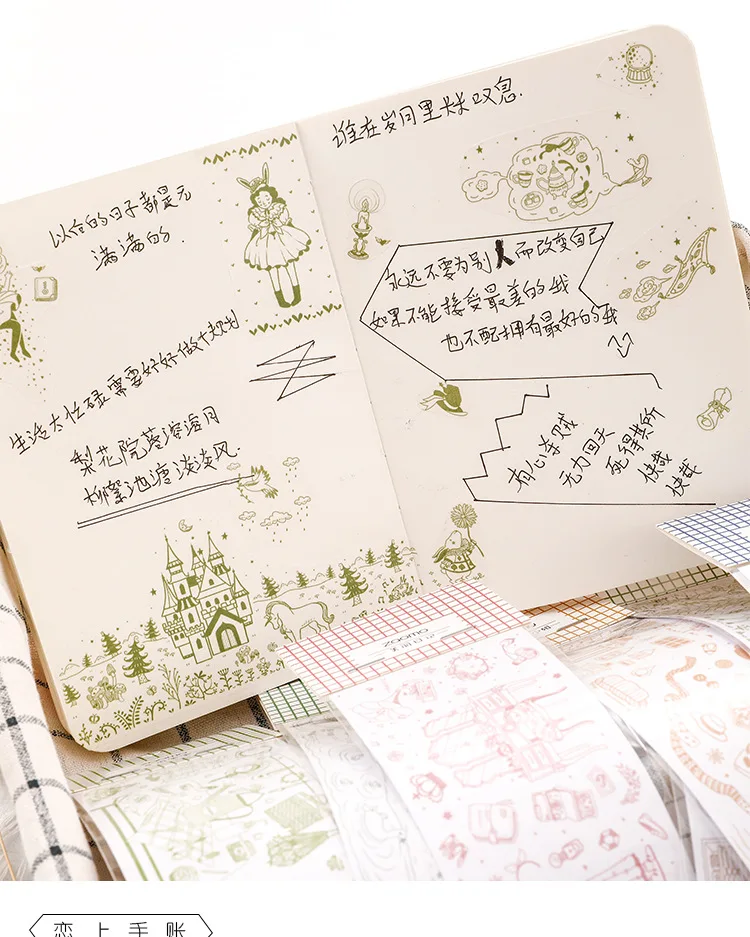 以后的日子都是元
满满的.
生活太忙碌需要好好做个规划
梨花院落溶溶月
柳絮池塘淡淡风.
谁在岁月里长长叹息.
永远不要为别人而改变自己
如果不能接受最差的我
也不配拥有最好的我
有心杀贼
无力回天
死得其所
快哉
快哉
zoomo
恋上手账